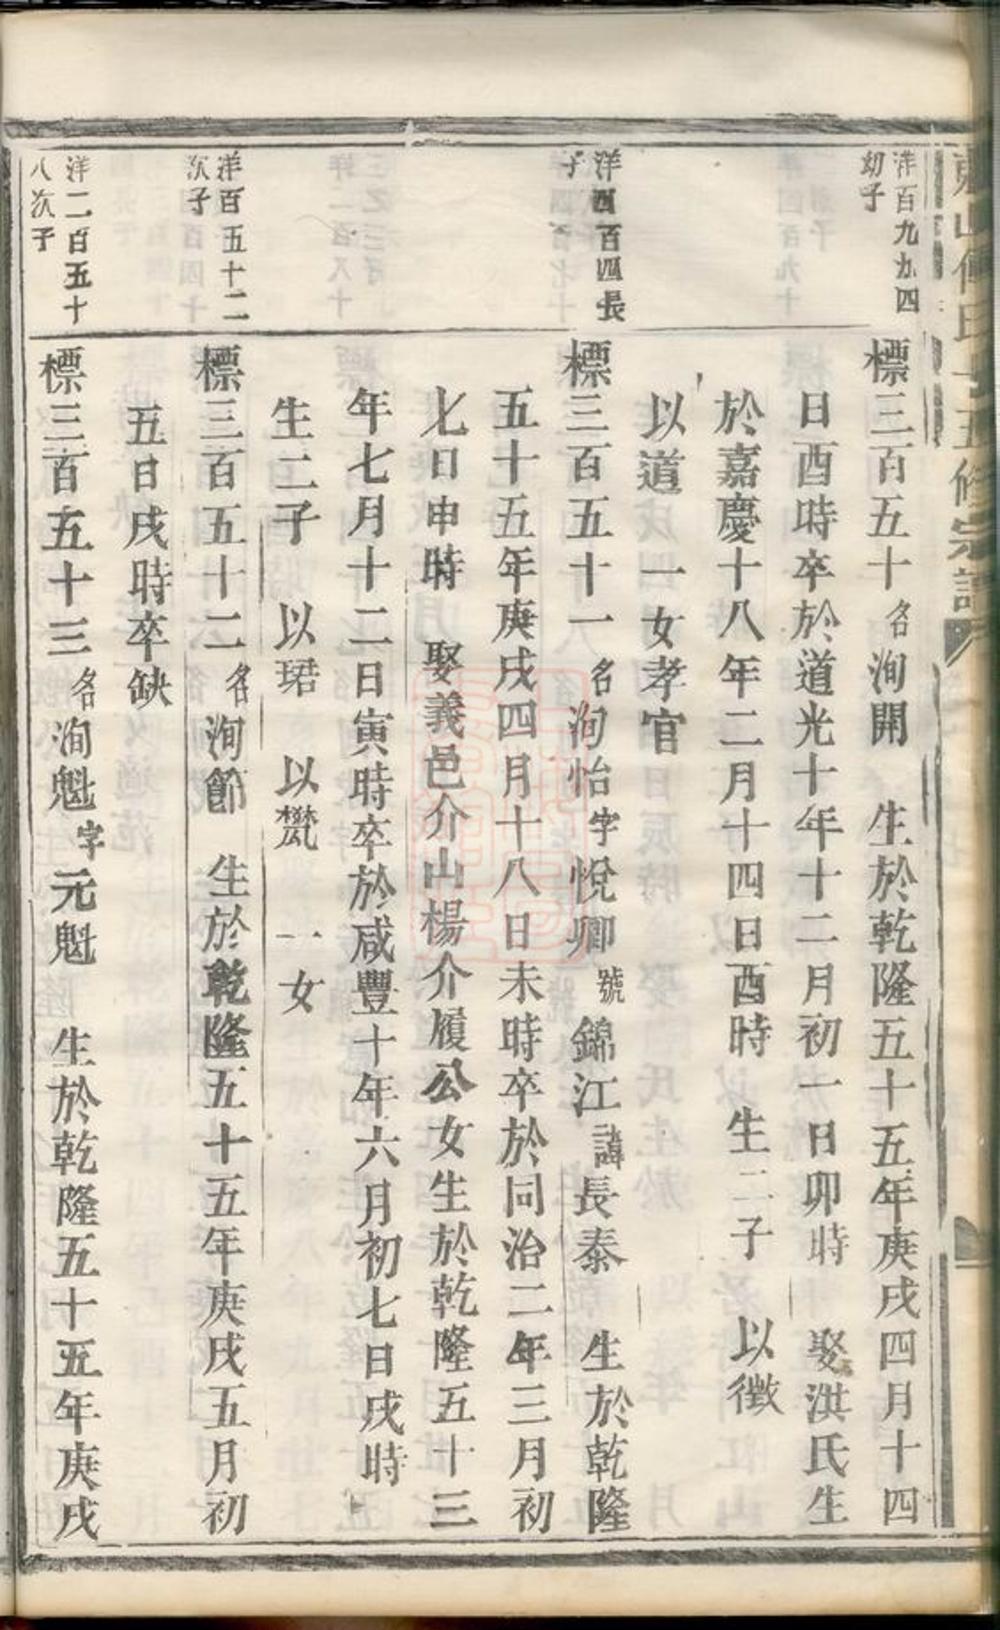 洋百九九四
幼子
標三百五十名洵開　生於乾隆五十五年庚戌四月十四
日酉時卒於道光十年十二月初一日卯時　娶洪氏生
於嘉慶十八年二月十四日酉時　生二子　以徵
以道　一女孝官
洋百四長
子
標三百五十一名洵怡字悅卿號錦江諱長泰　生於乾隆
五十五年庚戌四月十八日未時卒於同治二年三月初
七日申時　娶義邑介山楊介履公女生於乾隆五十三
年七月十二日寅時卒於咸豐十年六月初七日戌時
生二子　以珺　以㷱　一女
洋百五十二
次子
標三百五十二名洵節　生於乾隆五十五年庚戌五月初
五日戌時卒缺
洋二百五十
八次子
標三百五十三名洵魁字元魁　生於乾隆五十五年庚戌